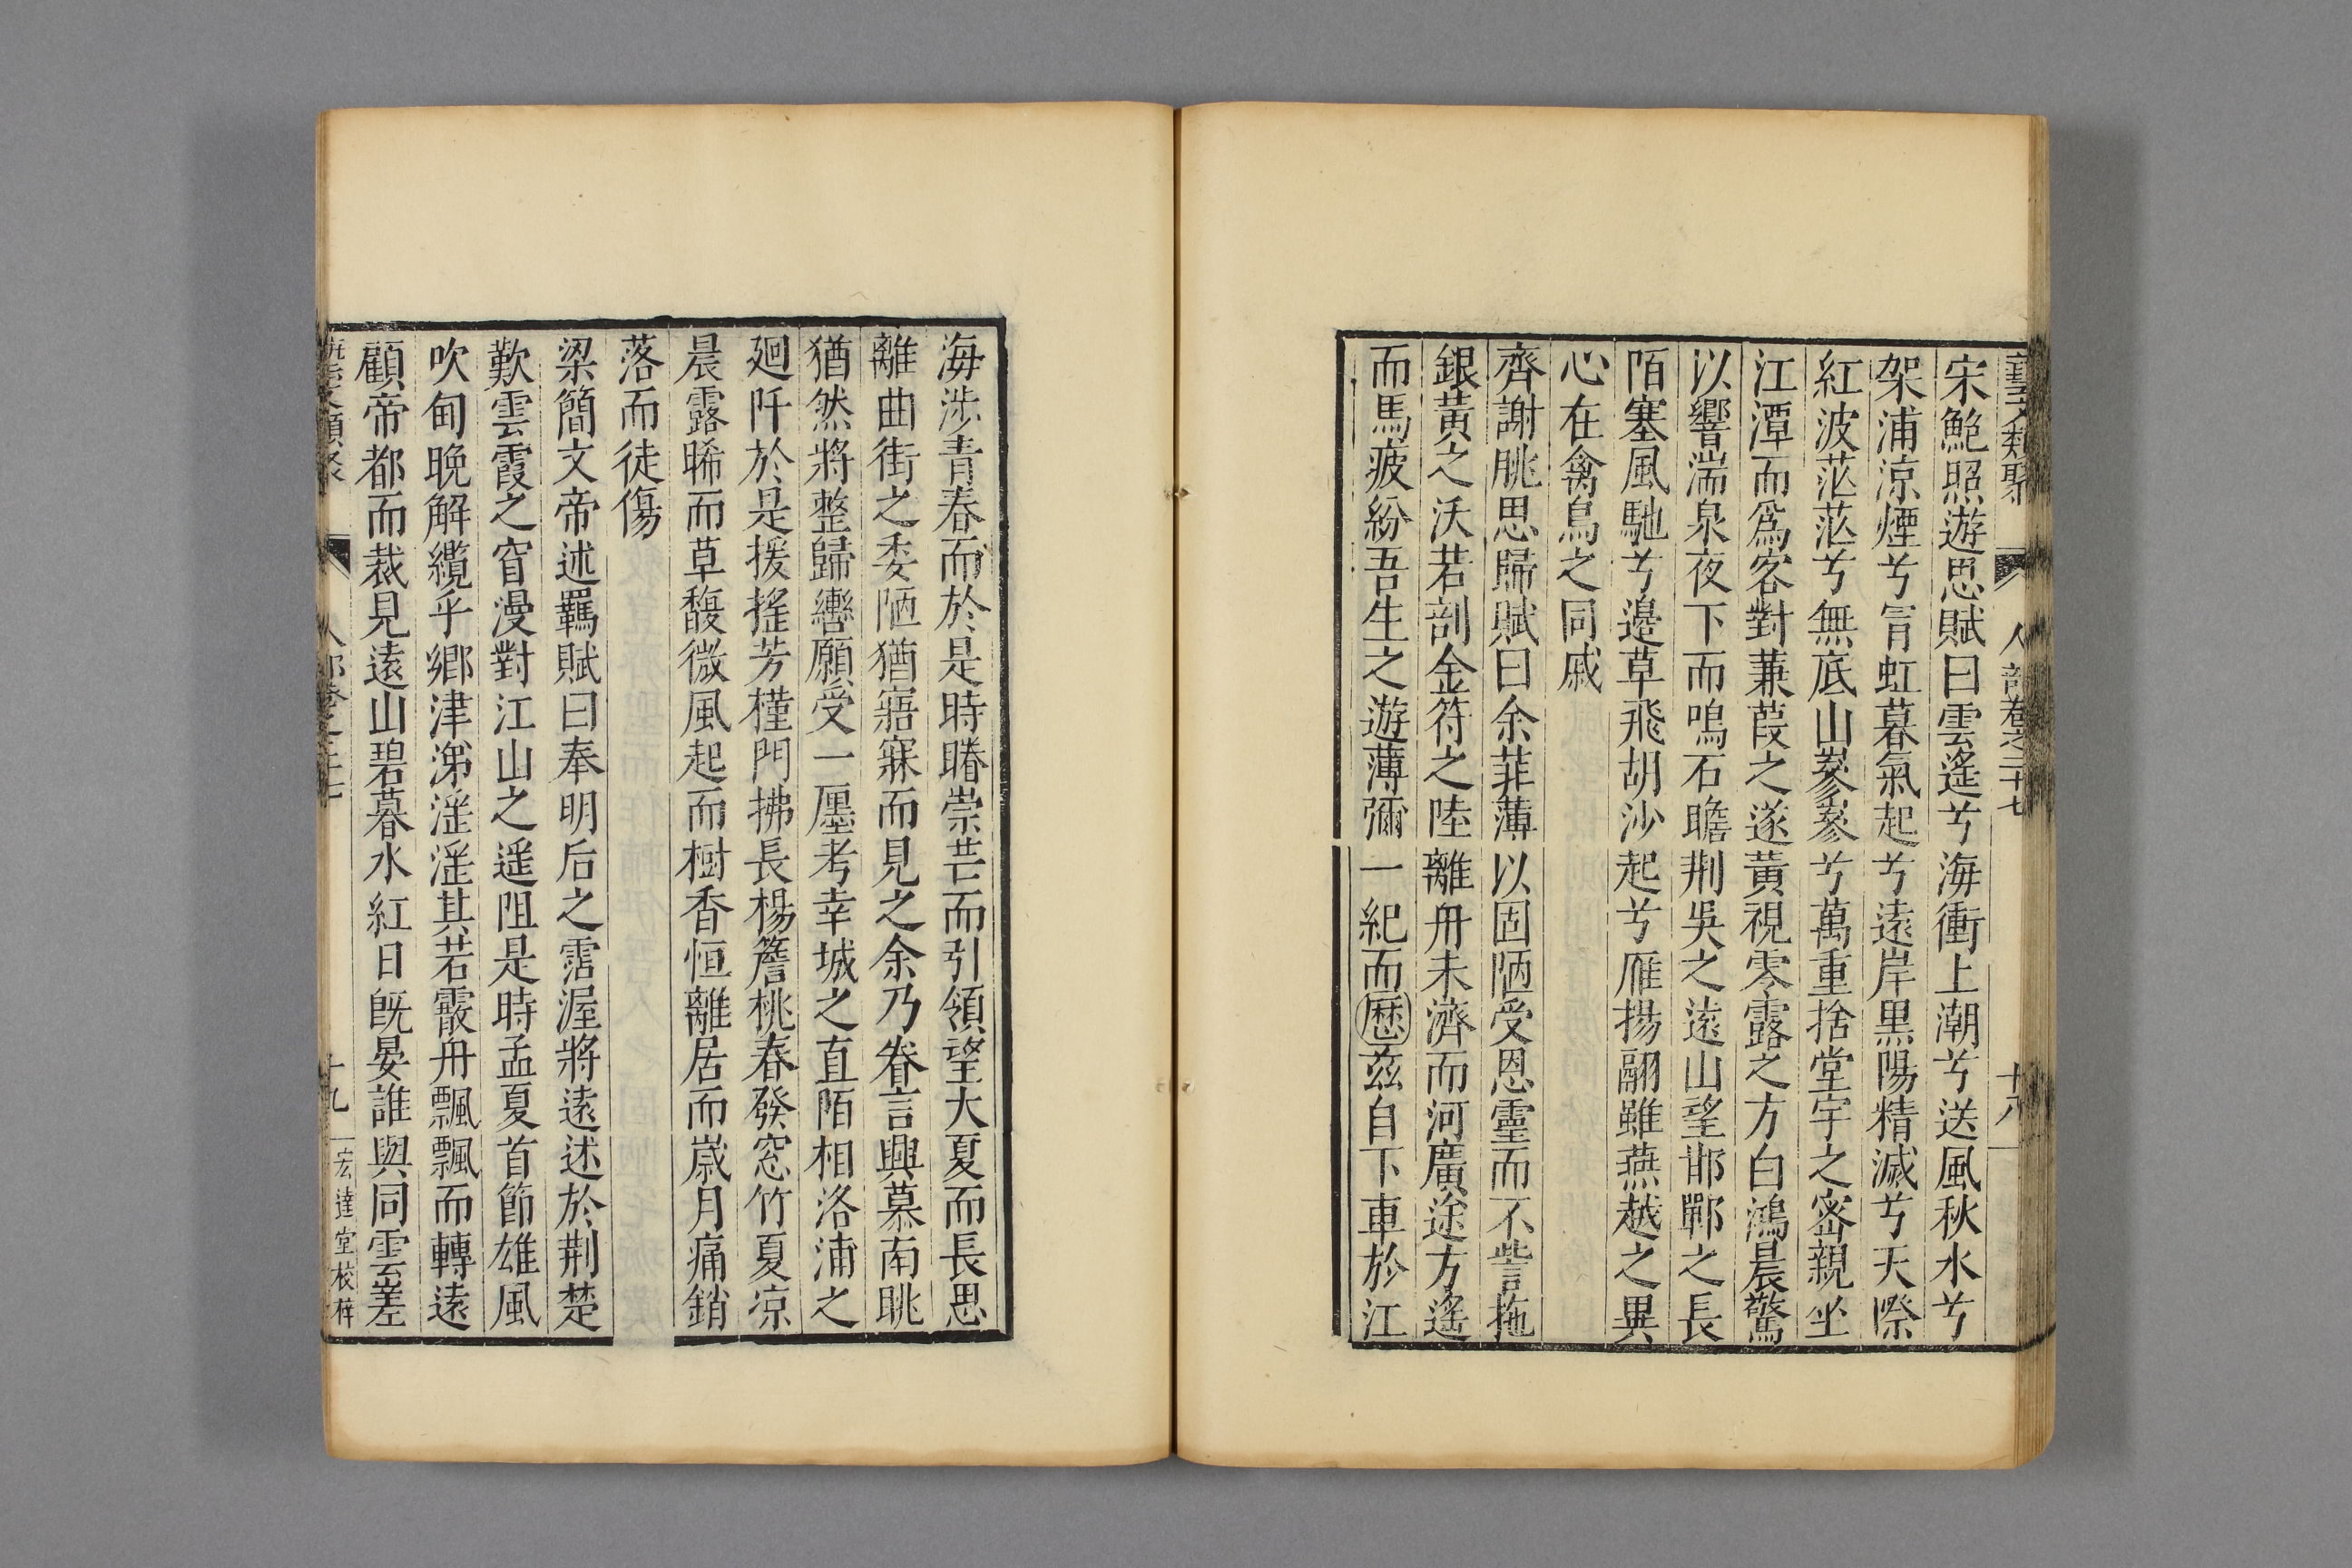 藝文類聚 人部卷之二十七 十八
宋鮑照遊思賦曰雲遙兮海衝上潮兮送風秋水兮
架浦涼煙兮冐虹暮氣起兮遠岸黑陽精滅兮天際
紅波茫茫兮無底山峩峩兮萬重捨堂宇之密親坐
江潭而爲客對蒹葭之遂黃視零露之方白鴻晨驚
以響湍泉夜下而鳴石瞻荆吳之遠山望邯鄲之長
陌塞風馳兮邊草飛胡沙起兮雁揚翮雖燕越之異
心在禽鳥之同戚
齊謝朓思歸賦曰余菲薄以固陋受恩靈而不訾拖
銀黃之沃若剖金符之陸離舟未濟而河廣途方遙
而馬疲紛吾生之遊薄彌一紀而歷茲自下車於江
海涉青春而於是時睠崇芒而引領望大夏而長思
離曲街之委陋猶寤寐而見之余乃眷言興慕南眺
猶然將整歸轡願受一廛考幸城之直陌相洛浦之
廻阡於是援搖芳槿門拂長楊簷桃春發窓竹夏凉
晨露晞而草馥微風起而樹香恒離居而歲月痛銷
落而徒傷
梁簡文帝述羈賦曰奉明后之霑渥將遠述於荆楚
歎雲霞之窅漫對江山之遥阻是時孟夏首節雄風
吹甸晚解纜乎鄉津涕滛滛其若霰舟飄飄而轉遠
顧帝都而裁見遠山碧暮水紅日旣晏誰與同雲嵳
人部卷之二十七 十九 宏達堂校梓